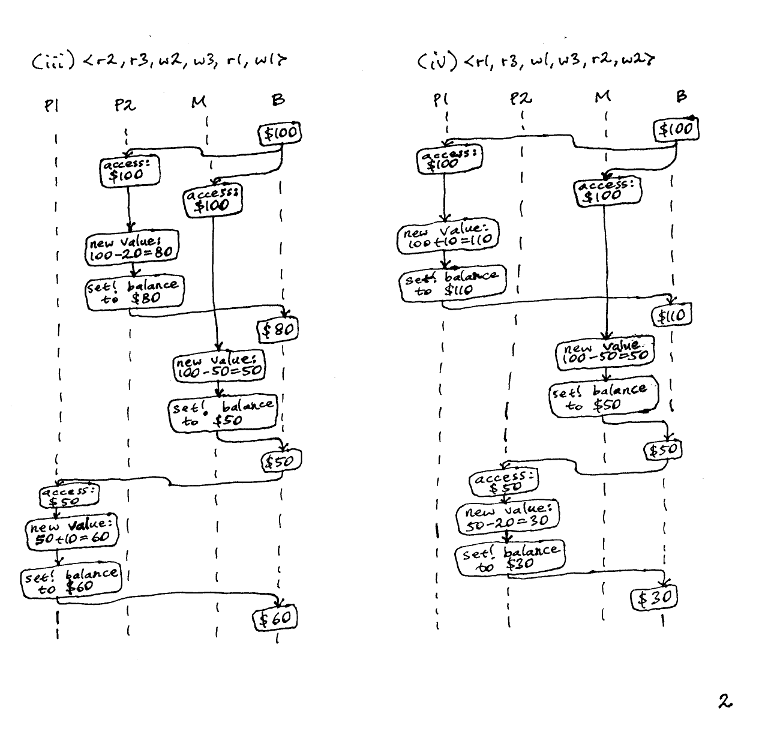 (iii) <r2, r3, w2, w3, r1, w1>
P1 P2 M B
$100
access:
$100
access:
$100
new value:
100-20=80
set! balance
to $80
$80
new value:
100-50=50
set! balance
to $50
$50
access:
$50
new value:
50+10=60
set! balance
to $60
$60
(iv) <r1, r3, w1, w3, r2, w2>
P1 P2 M B
$100
access:
$100
access:
$100
new value:
100+10=110
set! balance
to $110
$110
new value
100-50=50
set! balance
to $50
$50
access:
$50
new value:
50-20=30
set! balance
to $30
$30
2